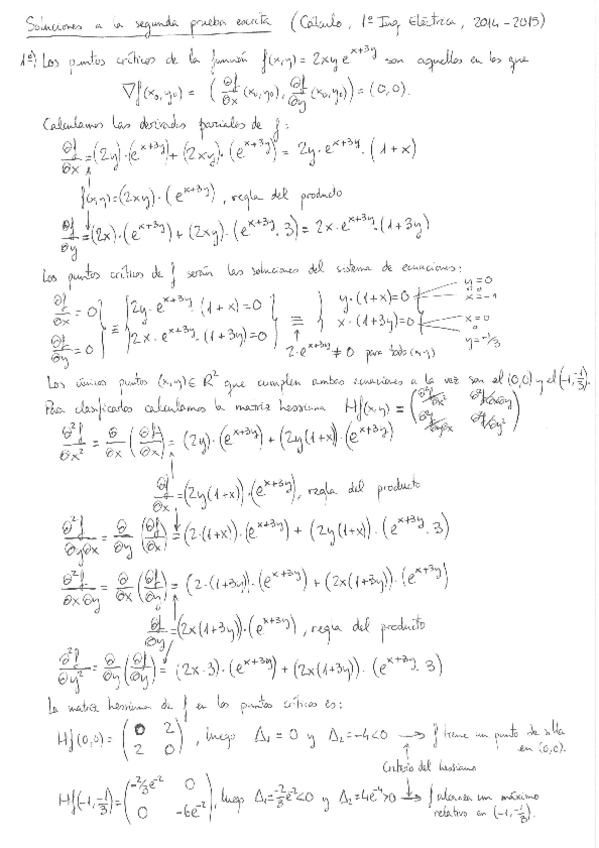 Soluciones a la segunda prueba escrita (Cálculo, 1º Ing Eléctrica, 2014-2015)
1º) Los puntos críticos de la función f(x,y) = 2xy e^{x+3y} son aquellos en los que
∇f(x₀,y₀) = (∂f/∂x (x₀,y₀), ∂f/∂y (x₀,y₀)) = (0,0).
Calculamos las derivadas parciales de f:
∂f/∂x = (2y)·(e^{x+3y}) + (2xy)·(e^{x+3y}) = 2y·e^{x+3y}·(1+x)
f(x,y) = (2xy)·(e^{x+3y}), regla del producto
∂f/∂y = (2x)·(e^{x+3y}) + (2xy)·(e^{x+3y}·3) = 2x·e^{x+3y}·(1+3y)
Los puntos críticos de f serán las soluciones del sistema de ecuaciones:
∂f/∂x = 0 } ≡ { 2y·e^{x+3y}·(1+x) = 0 } ≡ { y·(1+x) = 0 y=0 o x=-1
∂f/∂y = 0 } { 2x·e^{x+3y}·(1+3y) = 0 } { x·(1+3y) = 0 x=0 o y=-1/3
2·e^{x+3y} ≠ 0 para todo (x,y)
Los únicos puntos (x,y) ∈ R² que cumplen ambas ecuaciones a la vez son el (0,0) y el (-1,-1/3).
Para clasificarlos calculamos la matriz hessiana Hf(x,y) = (∂²f/∂x² ∂²f/∂x∂y
∂²f/∂y∂x ∂²f/∂y²)
∂²f/∂x² = ∂/∂x (∂f/∂x) = (2y)·(e^{x+3y}) + (2y(1+x))·(e^{x+3y})
∂f/∂x = (2y(1+x))·(e^{x+3y}), regla del producto
∂²f/∂y∂x = ∂/∂y (∂f/∂x) = (2·(1+x))·(e^{x+3y}) + (2y(1+x))·(e^{x+3y}·3)
∂²f/∂x∂y = ∂/∂x (∂f/∂y) = (2·(1+3y))·(e^{x+3y}) + (2x(1+3y))·(e^{x+3y})
∂f/∂y = (2x(1+3y))·(e^{x+3y}), regla del producto
∂²f/∂y² = ∂/∂y (∂f/∂y) = (2x·3)·(e^{x+3y}) + (2x(1+3y))·(e^{x+3y}·3)
La matriz hessiana de f en los puntos críticos es:
Hf(0,0) = (0 2
2 0), luego Δ₁ = 0 y Δ₂ = -4 < 0 → f tiene un punto de silla en (0,0).
Criterio del hessiano
Hf(-1,-1/3) = (-2/3 e^{-2} 0
0 -6e^{-2}), luego Δ₁ = -2/3 e^{-2} < 0 y Δ₂ = 4e^{-4} > 0 → f alcanza un máximo relativo en (-1,-1/3).